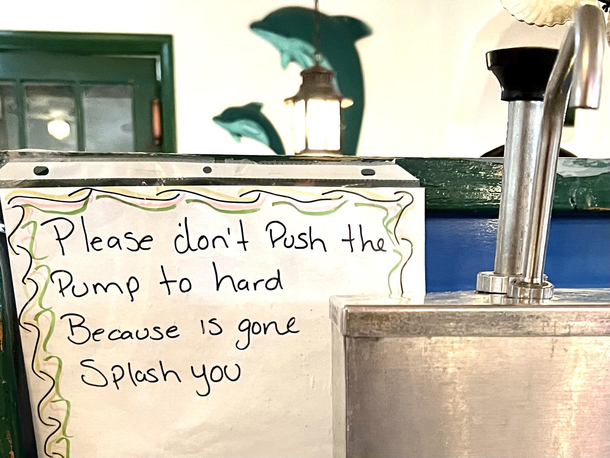 Please don't Push the
Pump to hard
Because is gone
Splash you